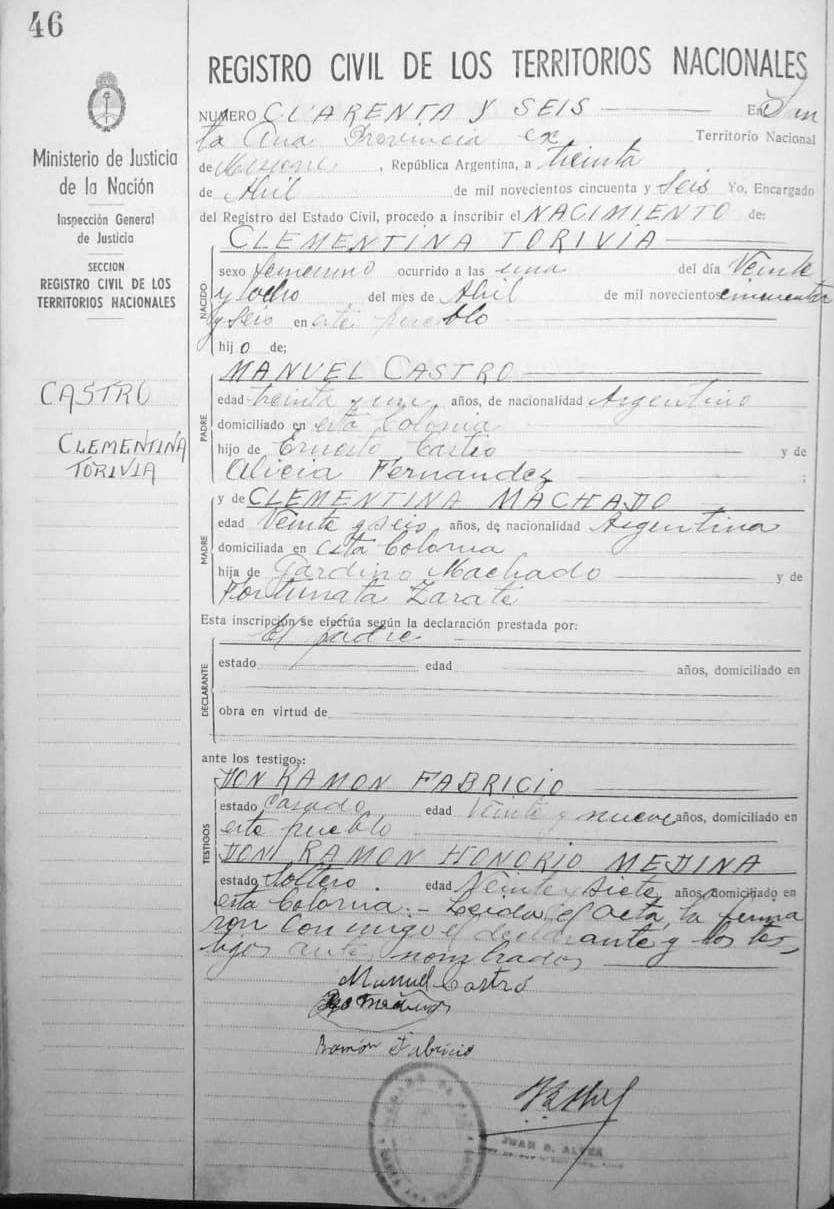 46
REGISTRO CIVIL DE LOS TERRITORIOS NACIONALES
Ministerio de Justicia
de la Nación
Inspección General
de Justicia
SECCION
REGISTRO CIVIL DE LOS
TERRITORIOS NACIONALES
CASTRO
CLEMENTINA
TORIVIA
NUMERO CUARENTA Y SEIS En San
ta Ana Provincia ex Territorio Nacional
de Misiones, República Argentina, a treinta
de Abril de mil novecientos cincuenta y Seis Yo, Encargado
del Registro del Estado Civil, procedo a inscribir el NACIMIENTO de:
CLEMENTINA TORIVIA
NACIDO
sexo femenino ocurrido a las una del día Veinte
y ocho del mes de Abril de mil novecientos cincuenta
y seis en este pueblo
hijo de;
PADRE
MANUEL CASTRO
edad treinta y un años, de nacionalidad Argentino
domiciliado en esta Colonia
hijo de Ernesto Castro y de
Alicia Fernandez ;
MADRE
y de CLEMENTINA MACHADO
edad Veinte y seis años, de nacionalidad Argentina
domiciliada en esta Colonia
hija de Gardino Machado y de
Fortunata Zarate
Esta inscripción se efectúa según la declaración prestada por:
El padre
DECLARANTE
estado edad años, domiciliado en
obra en virtud de
ante los testigos:
TESTIGOS
DON RAMON FABRICIO
estado Casado edad Veinte y nueve años, domiciliado en
este pueblo
DON RAMON HONORIO MEDINA
estado Soltero. edad Veinte y Siete años, domiciliado en
esta Colonia.- Leida el acta, la firma
ron conmigo el declarante y los tes
tigos antes nombrados
Manuel Castro
Ramón Fabricio
JUAN B. ALVEZ